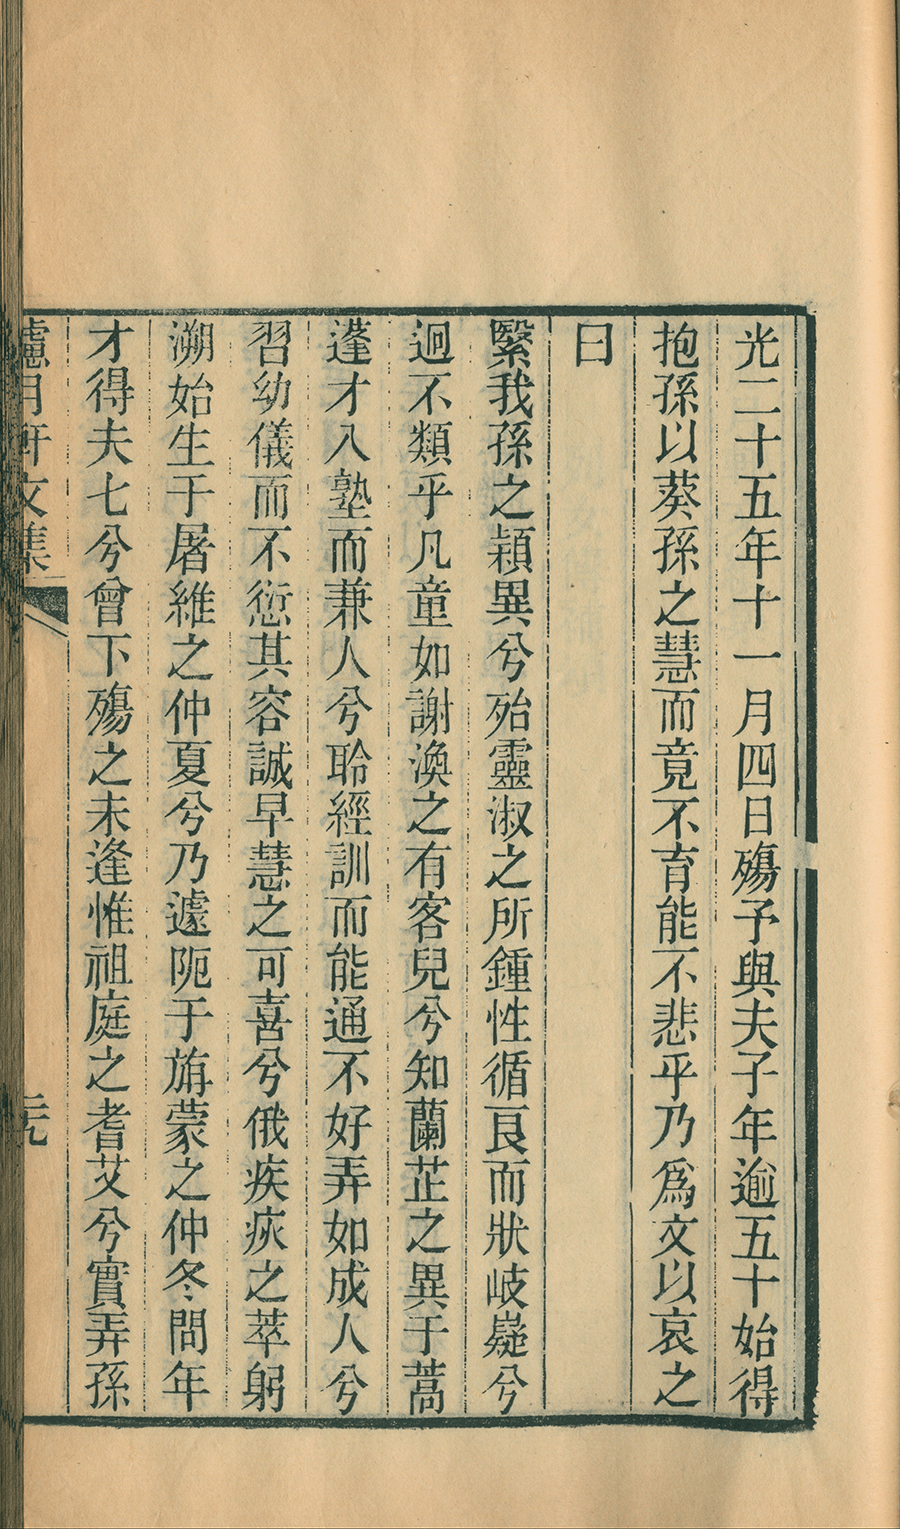 光二十五年十一月四日殤予與夫子年逾五十始得
抱孫以葵孫之慧而竟不育能不悲乎乃爲文以哀之
曰
繄我孫之穎異兮殆靈淑之所鍾性循良而狀岐嶷兮
迥不類乎凡童如謝渙之有客兒兮知蘭芷之異于蒿
蓬才入塾而兼人兮聆經訓而能通不好弄如成人兮
習幼儀而不愆其容誠早慧之可喜兮俄疾疢之萃躬
溯始生于屠維之仲夏兮乃遽阨于旃蒙之仲冬問年
才得夫七兮曾下殤之未逢惟祖庭之耆艾兮實弄孫
月軒文集